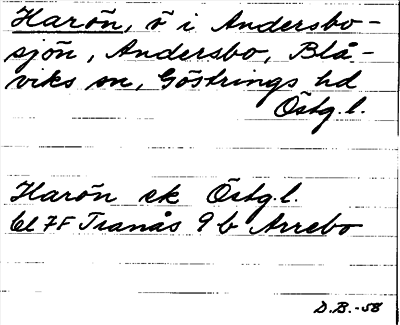 Harön, ö i Andersbo-
sjön, Andersbo, Blå-
viks sn, Göstrings hd
Östg.l.
Harön ek Östg.l.
bl 7F Tranås 9 b Arrebo
D.B.-58